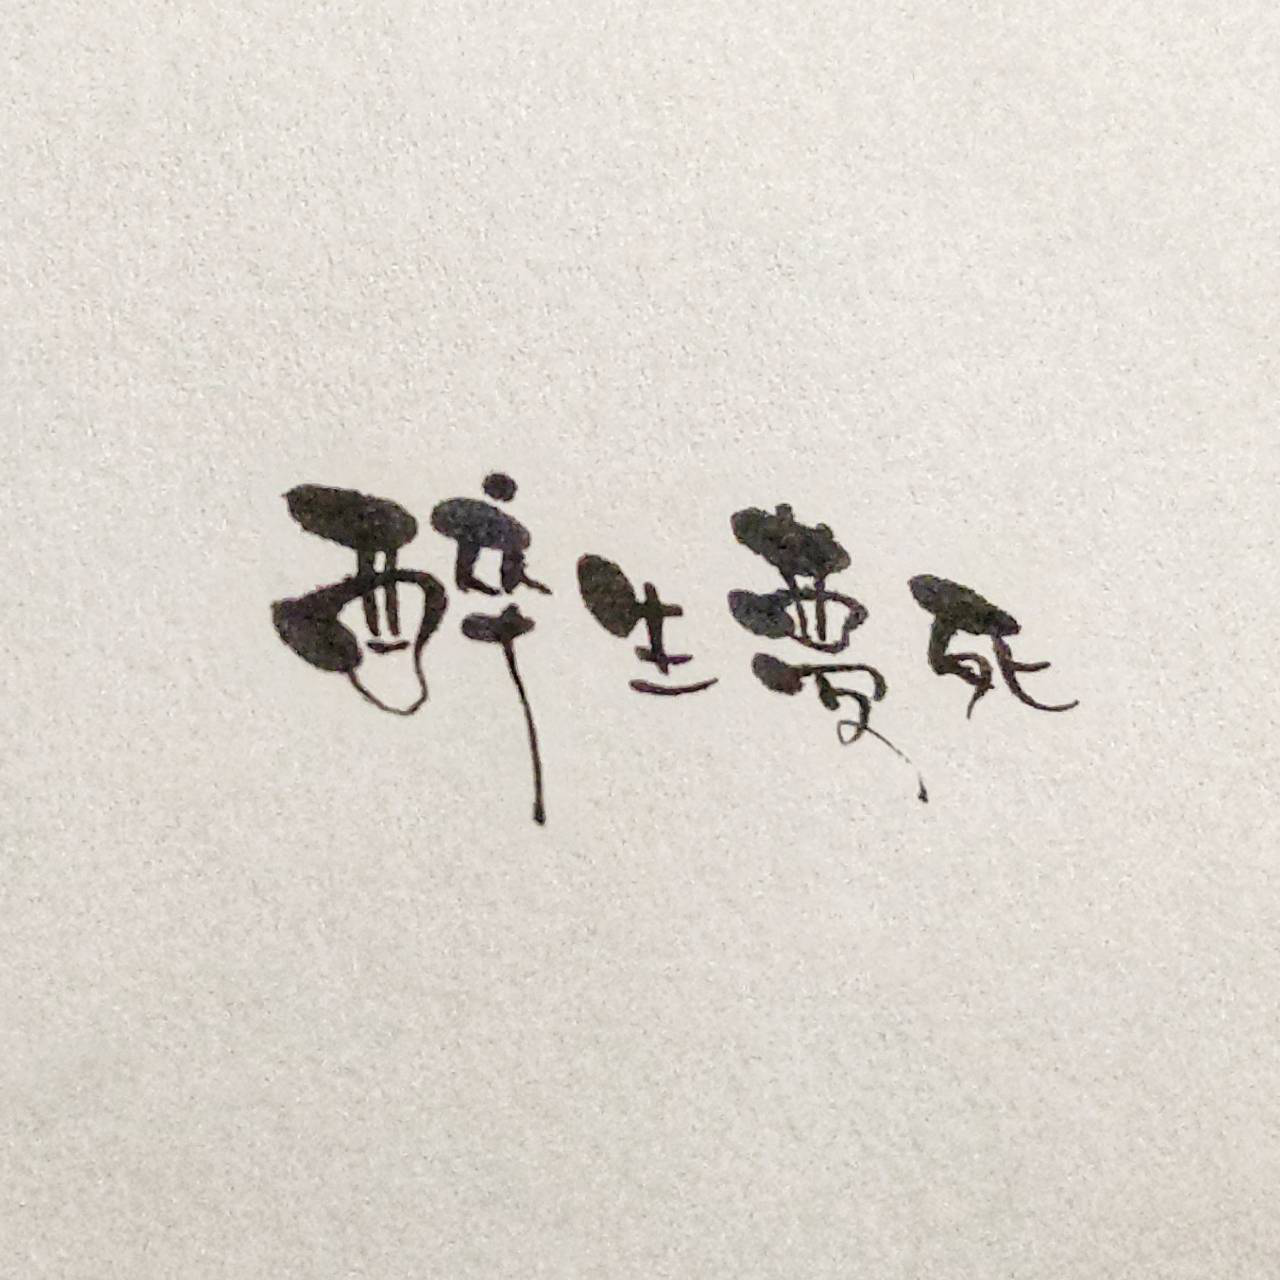 醉生夢死